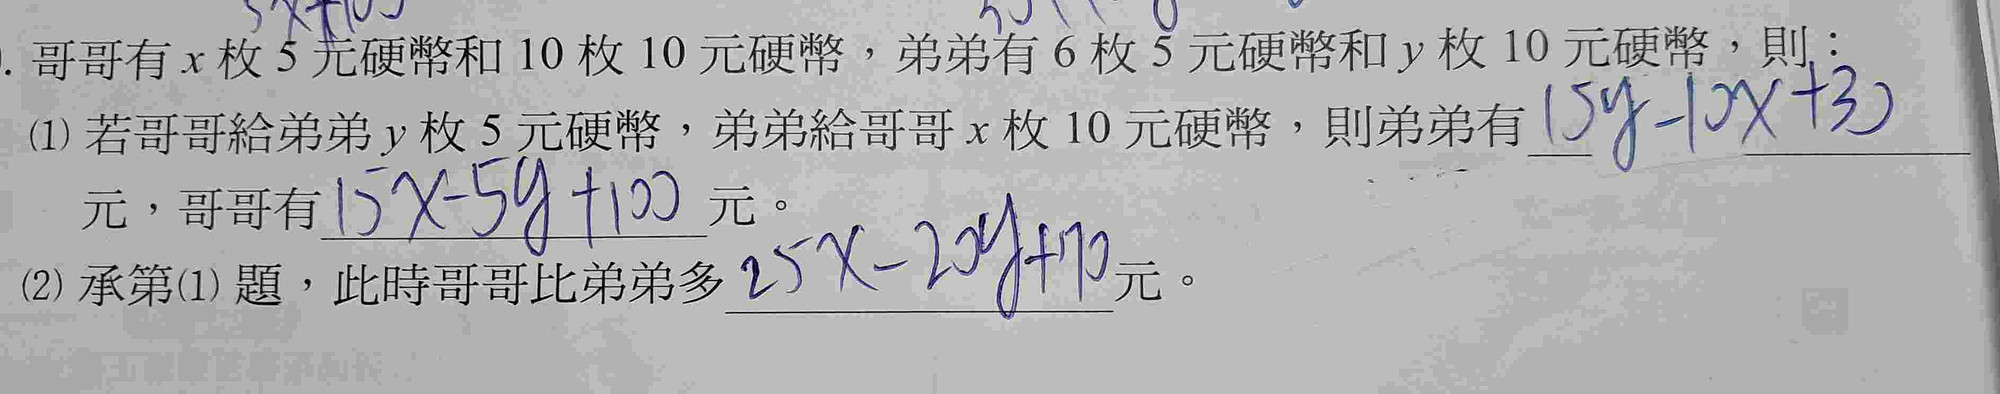 5x+100
. 哥哥有 x 枚 5 元硬幣和 10 枚 10 元硬幣，弟弟有 6 枚 5 元硬幣和 y 枚 10 元硬幣，則：
(1) 若哥哥給弟弟 y 枚 5 元硬幣，弟弟給哥哥 x 枚 10 元硬幣，則弟弟有 15y-10x+30
元，哥哥有 15x-5y+100 元。
(2) 承第(1) 題，此時哥哥比弟弟多 25x-20y+70 元。